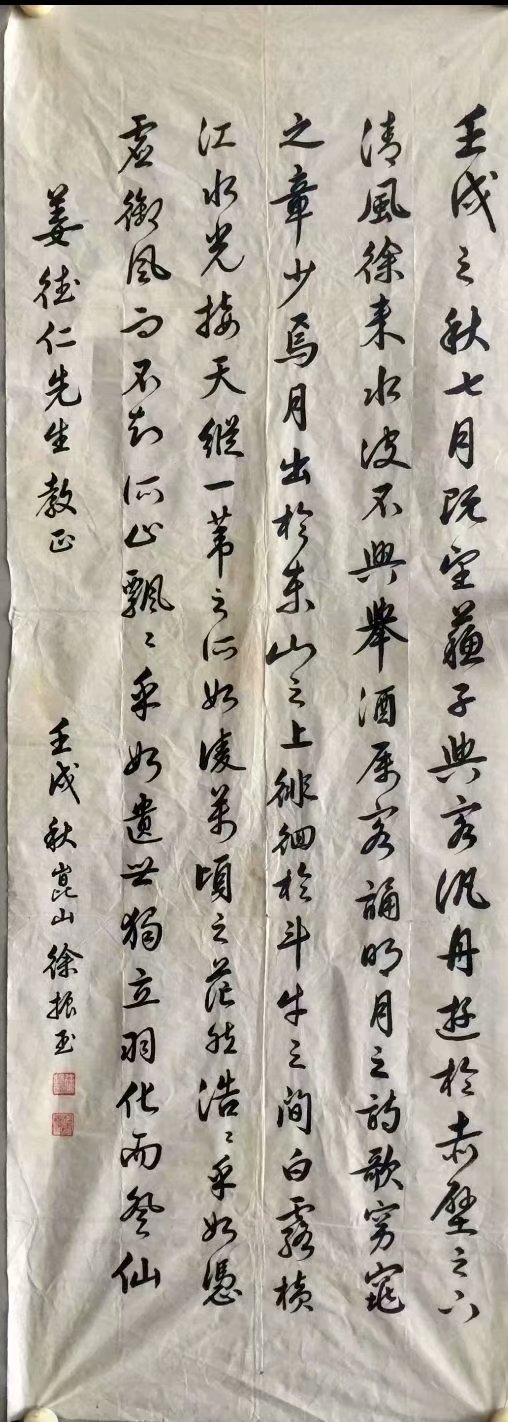 壬戌之秋七月既望蘇子與客汎舟遊於赤壁之下
清風徐来水波不興舉酒属客誦明月之詩歌窈窕
之章少焉月出於東山之上徘徊於斗牛之間白露横
江水光接天縱一葦之所如凌萬頃之茫然浩〻乎如憑
虚御風而不知所止飄〻乎如遺世獨立羽化而登仙
姜德仁先生教正
壬戌秋崑山徐振玉